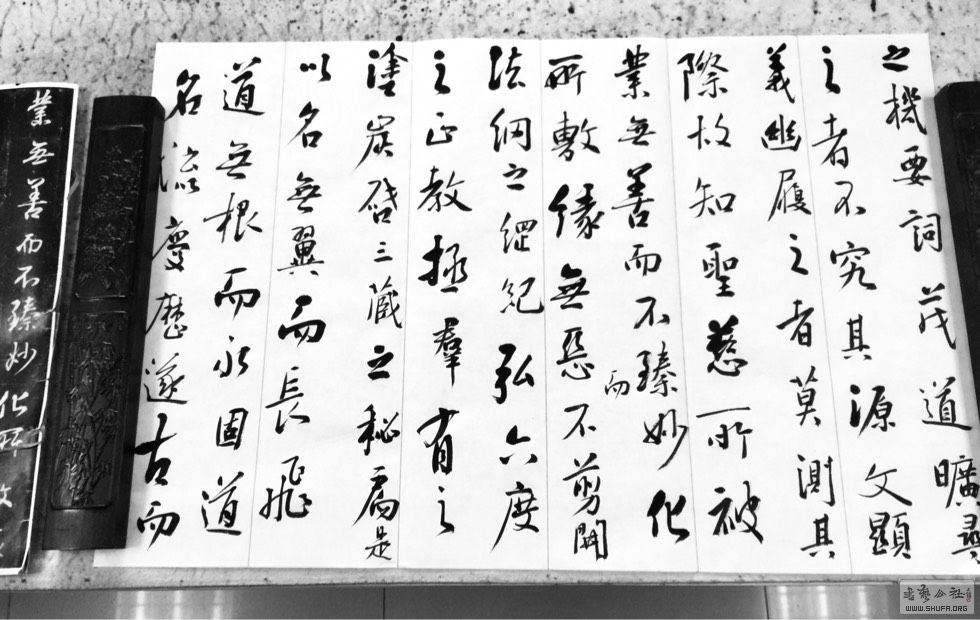 之機要詞茂道曠尋
之者不究其源文顯
義幽履之者莫測其
際故知聖慈所被
業無善而不臻妙化
所敷緣無惡而不剪開
法網之綱紀弘六度
之正教拯羣有之
塗炭啓三藏之秘扃是
以名無翼而長飛
道無根而永固道
名流慶歷遂古而
業無善而不臻妙化所敷
書藝公社
WWW.SHUFA.ORG